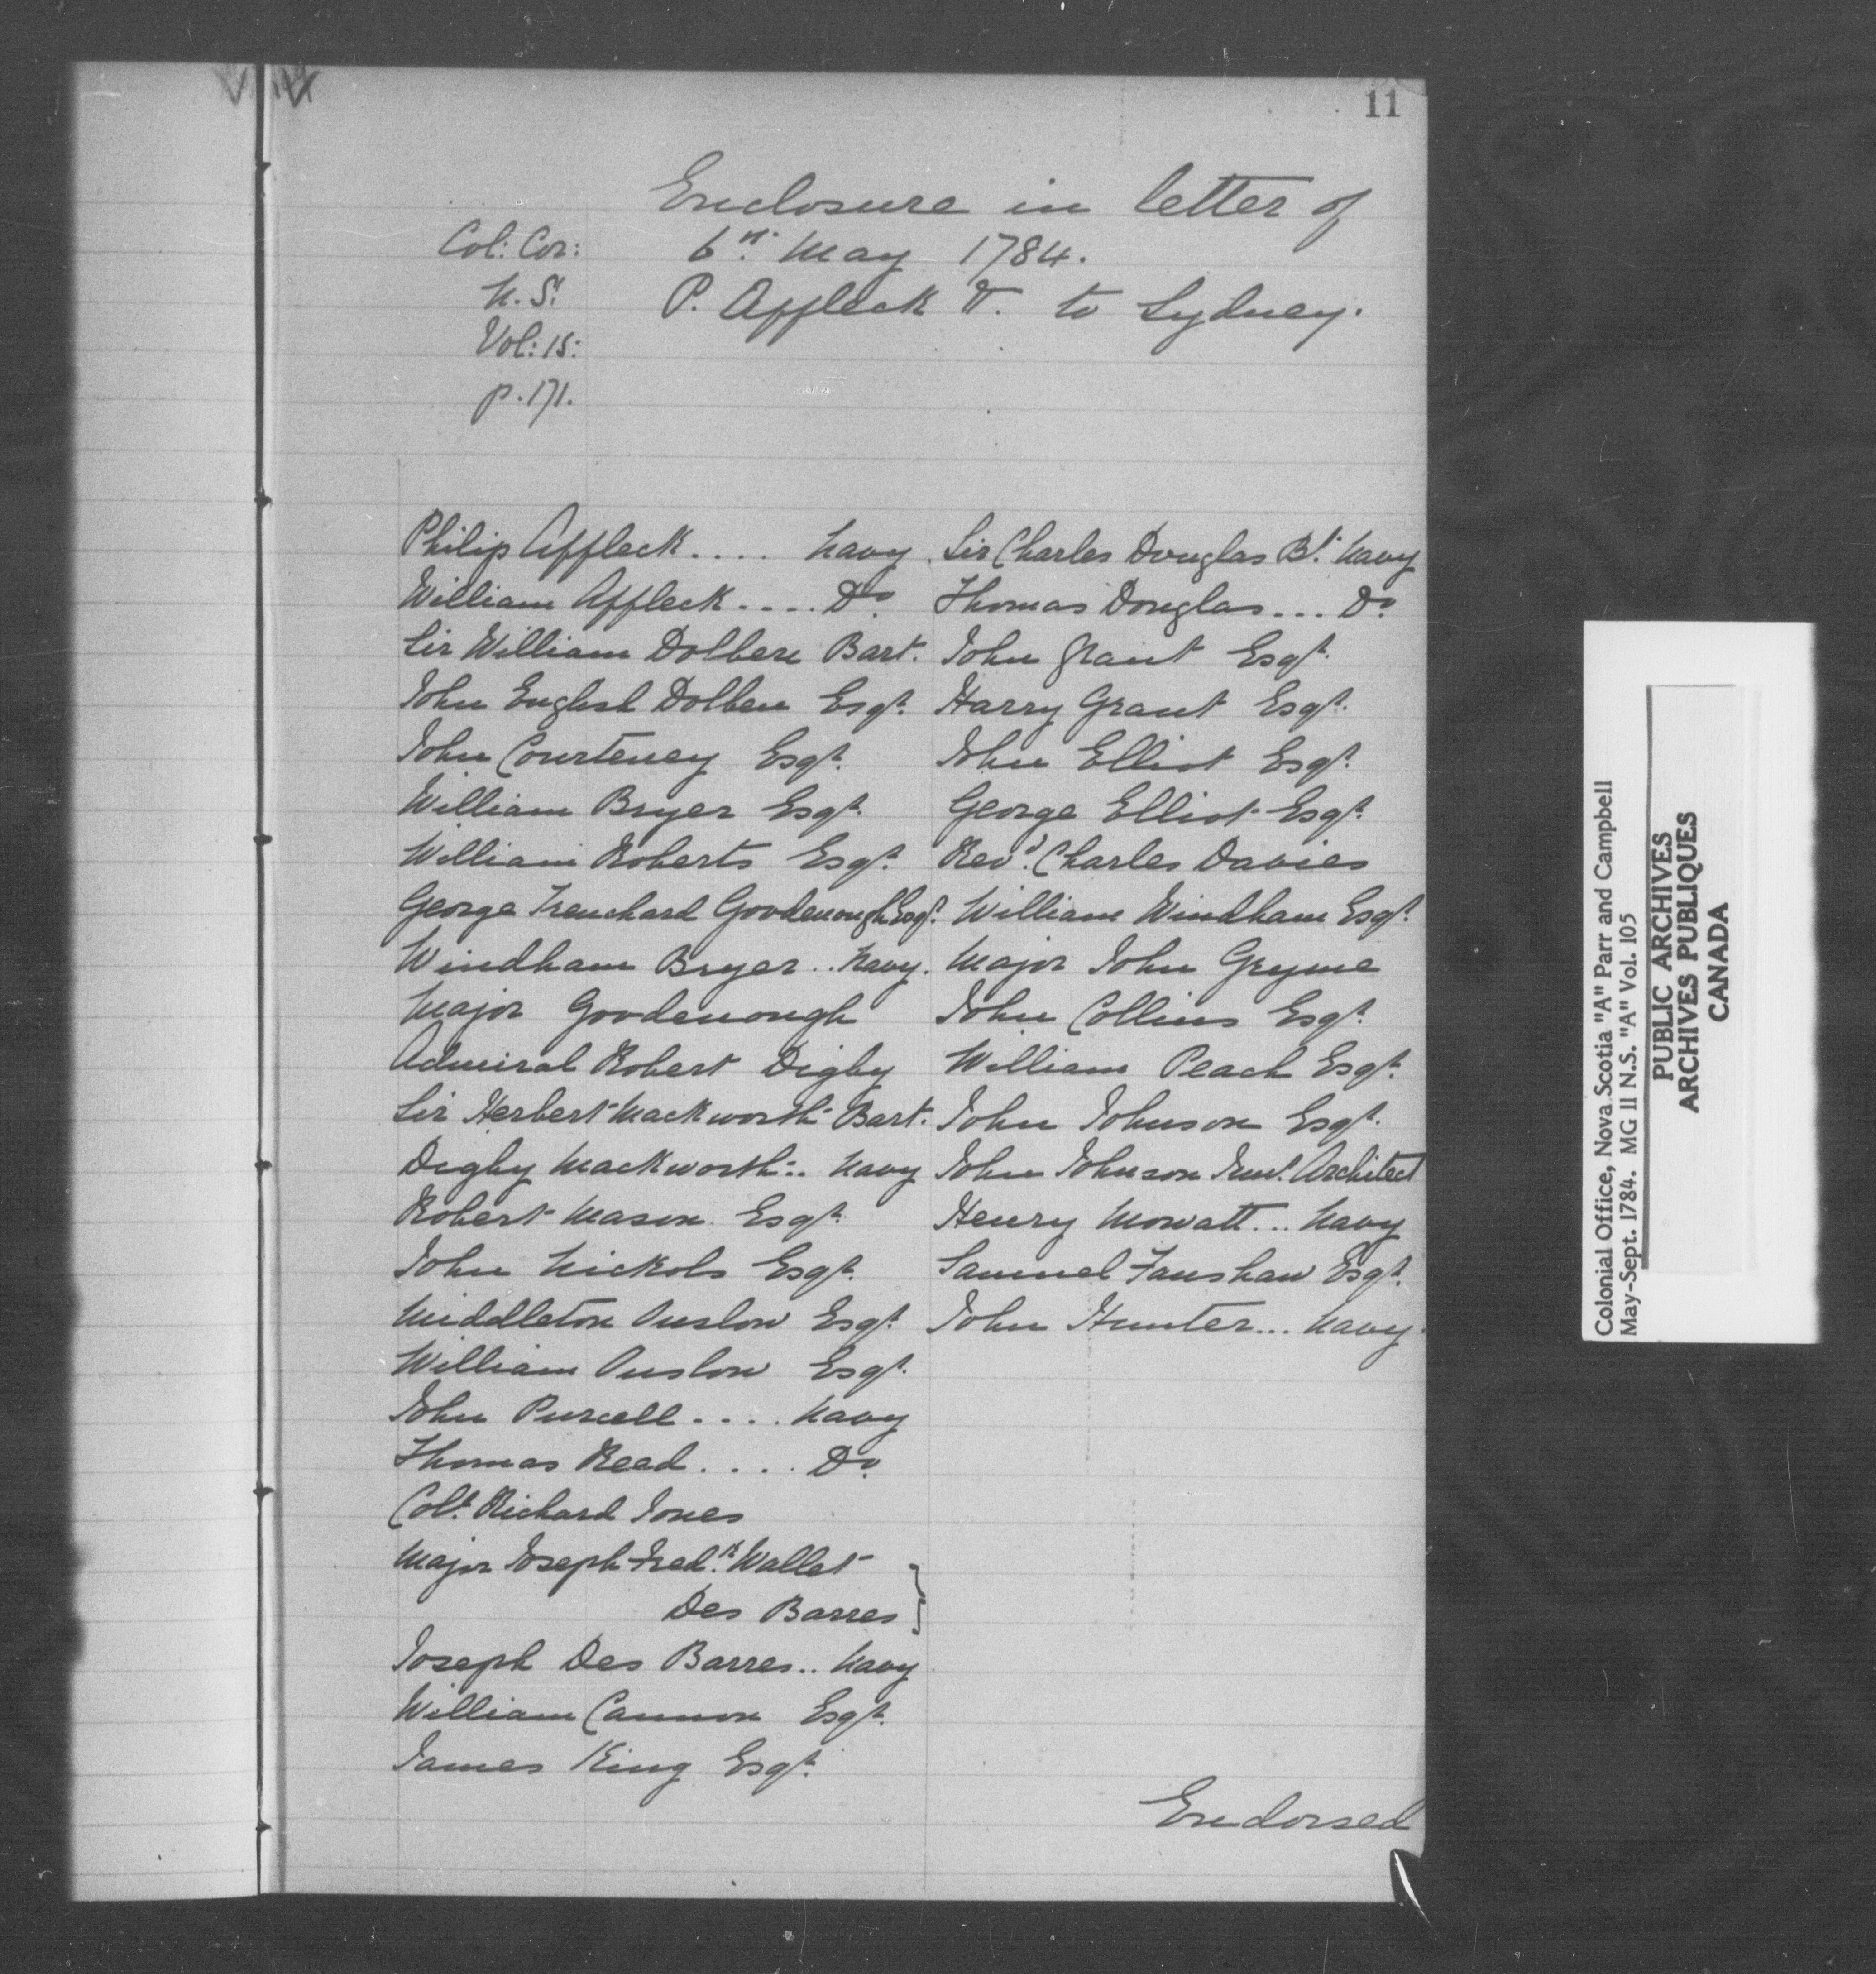 11
Enclosure in letter of
6th May 1784.
P. Affleck to Sydney.
Col: Cor:
N. S.
Vol: 15:
p. 171.
Philip Affleck.... Navy
William Affleck.... Do.
Sir William Dolben Bart.
John English Dolben Esqr.
John Courteney Esqr.
William Bryer Esqr.
William Roberts Esqr.
George Trenchard Goodenough Esqr.
Windham Bryer.. Navy.
Major Goodenough
Admiral Robert Digby
Sir Herbert Mackworth Bart.
Digby Mackworth.. Navy
Robert Mason Esqr.
John Nickols Esqr.
Middleton Onslow Esqr.
William Onslow Esqr.
John Purcell.... Navy
Thomas Read.... Do.
Coll. Richard Jones
Major Joseph Fredk. Wallet
Des Barres
Joseph Des Barres.. Navy
William Cannon Esqr.
James King Esqr.
Sir Charles Douglas Bt. Navy
Thomas Douglas... Do.
John Grant Esqr.
Harry Grant Esqr.
John Elliot Esqr.
George Elliot Esqr.
Revd. Charles Davies
William Windham Esqr.
Major John Gryme
John Collins Esqr.
William Peach Esqr.
John Johnson Esqr.
John Johnson Junr. Architect
Henry Mowatt... Navy
Samuel Fanshaw Esqr.
John Hunter... Navy.
Endorsed
Colonial Office, Nova Scotia "A" Parr and Campbell
May-Sept. 1784. MG 11 N.S. "A" Vol. 105
PUBLIC ARCHIVES
ARCHIVES PUBLIQUES
CANADA